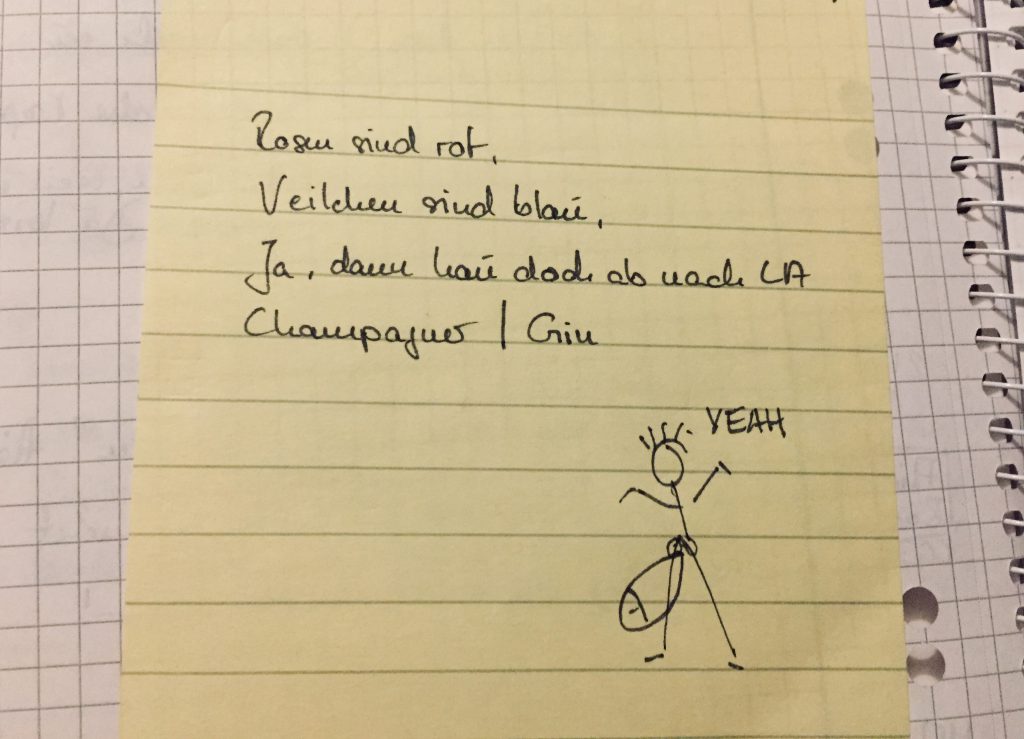 Rosen sind rot,
Veilchen sind blau,
Ja, dann hau doch ab nach LA
Champagner | Gin
YEAH